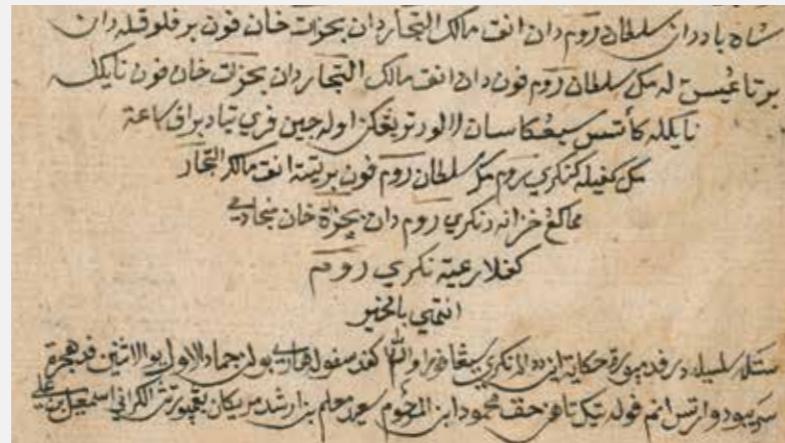 شاه بادران سلطان روم دان انق مالك التجار دان بحزات خان فون برفلوق٢له دان
برتاڠيسن له مك سلطان روم فون دان انق مالك التجار دان بحزات خان فون نايكله
نايكله كأتس سيڠكاسان لالو دتربڠكن اوله جين فري تياد براف ساعة
مك سلطان روم فون انق مالك التجار
خزانه دنكري روم دان بحزاة خان منجادي
كفلا رعية نكري روم
انتهي بالخير
ستله سلسيله درفد ميورة حكاية اين د دالم نكري سيڠافورا كفد سفوله هاري بولن جماد الاول يوم الاثنين فد هجرة
سريبو دوراتس انم فوله تيك تاهن حق محمود ابن المرحوم سيد معلم بن ارشد مريكان يڠميورتڽ الكراني اسمعيل بن علي